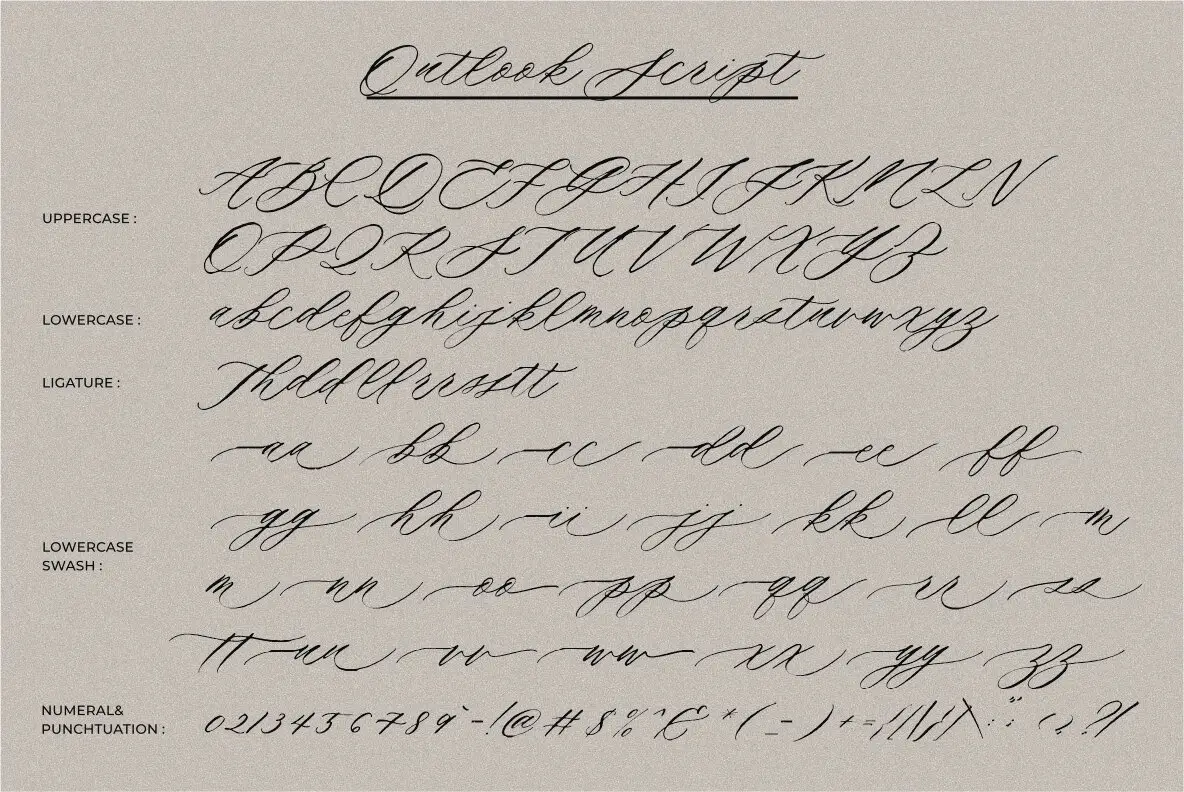 Outlook Script
ABCDEFGHIJKMLN
UPPERCASE :
OPQRSTUVWXYZ
LOWERCASE : abcdefghijklmnopqrstuvwxyz
LIGATURE : Thddllrrsstt
aa bb cc dd ee ff
gg hh ii jj kk ll m
LOWERCASE
SWASH :
m nn oo pp qq rr ss
tt uu vv ww xx yy zz
NUMERAL&
PUNCHTUATION :
0213456789`-!@#$%^&*(_-)+=